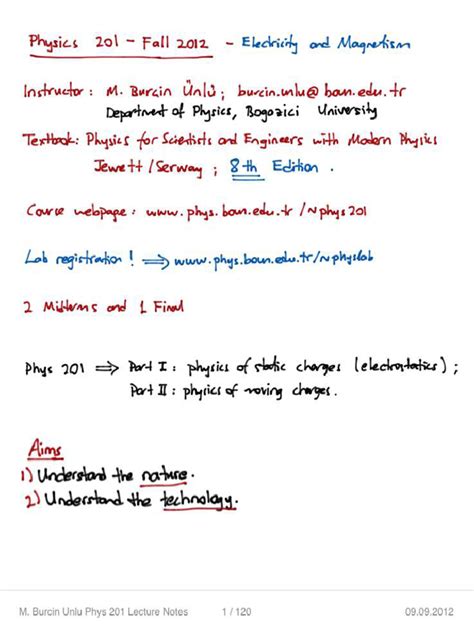 Physics 201 - Fall 2012 - Electricity and Magnetism
Instructor: M. Burcin Ünlü; burcin.unlu@boun.edu.tr
Department of Physics, Bogazici University
Textbook: Physics for Scientists and Engineers with Modern Physics
Jewett/Serway; 8th Edition.
Course webpage: www.phys.boun.edu.tr/~phys201
Lab registration! ⟹ www.phys.boun.edu.tr/~physlab
2 Midterms and 1 Final
Phys 201 ⟹ Part I: physics of static charges (electrostatics);
Part II: physics of moving charges.
Aims
1) Understand the nature.
2) Understand the technology.
M. Burcin Unlu Phys 201 Lecture Notes 1 / 120 09.09.2012